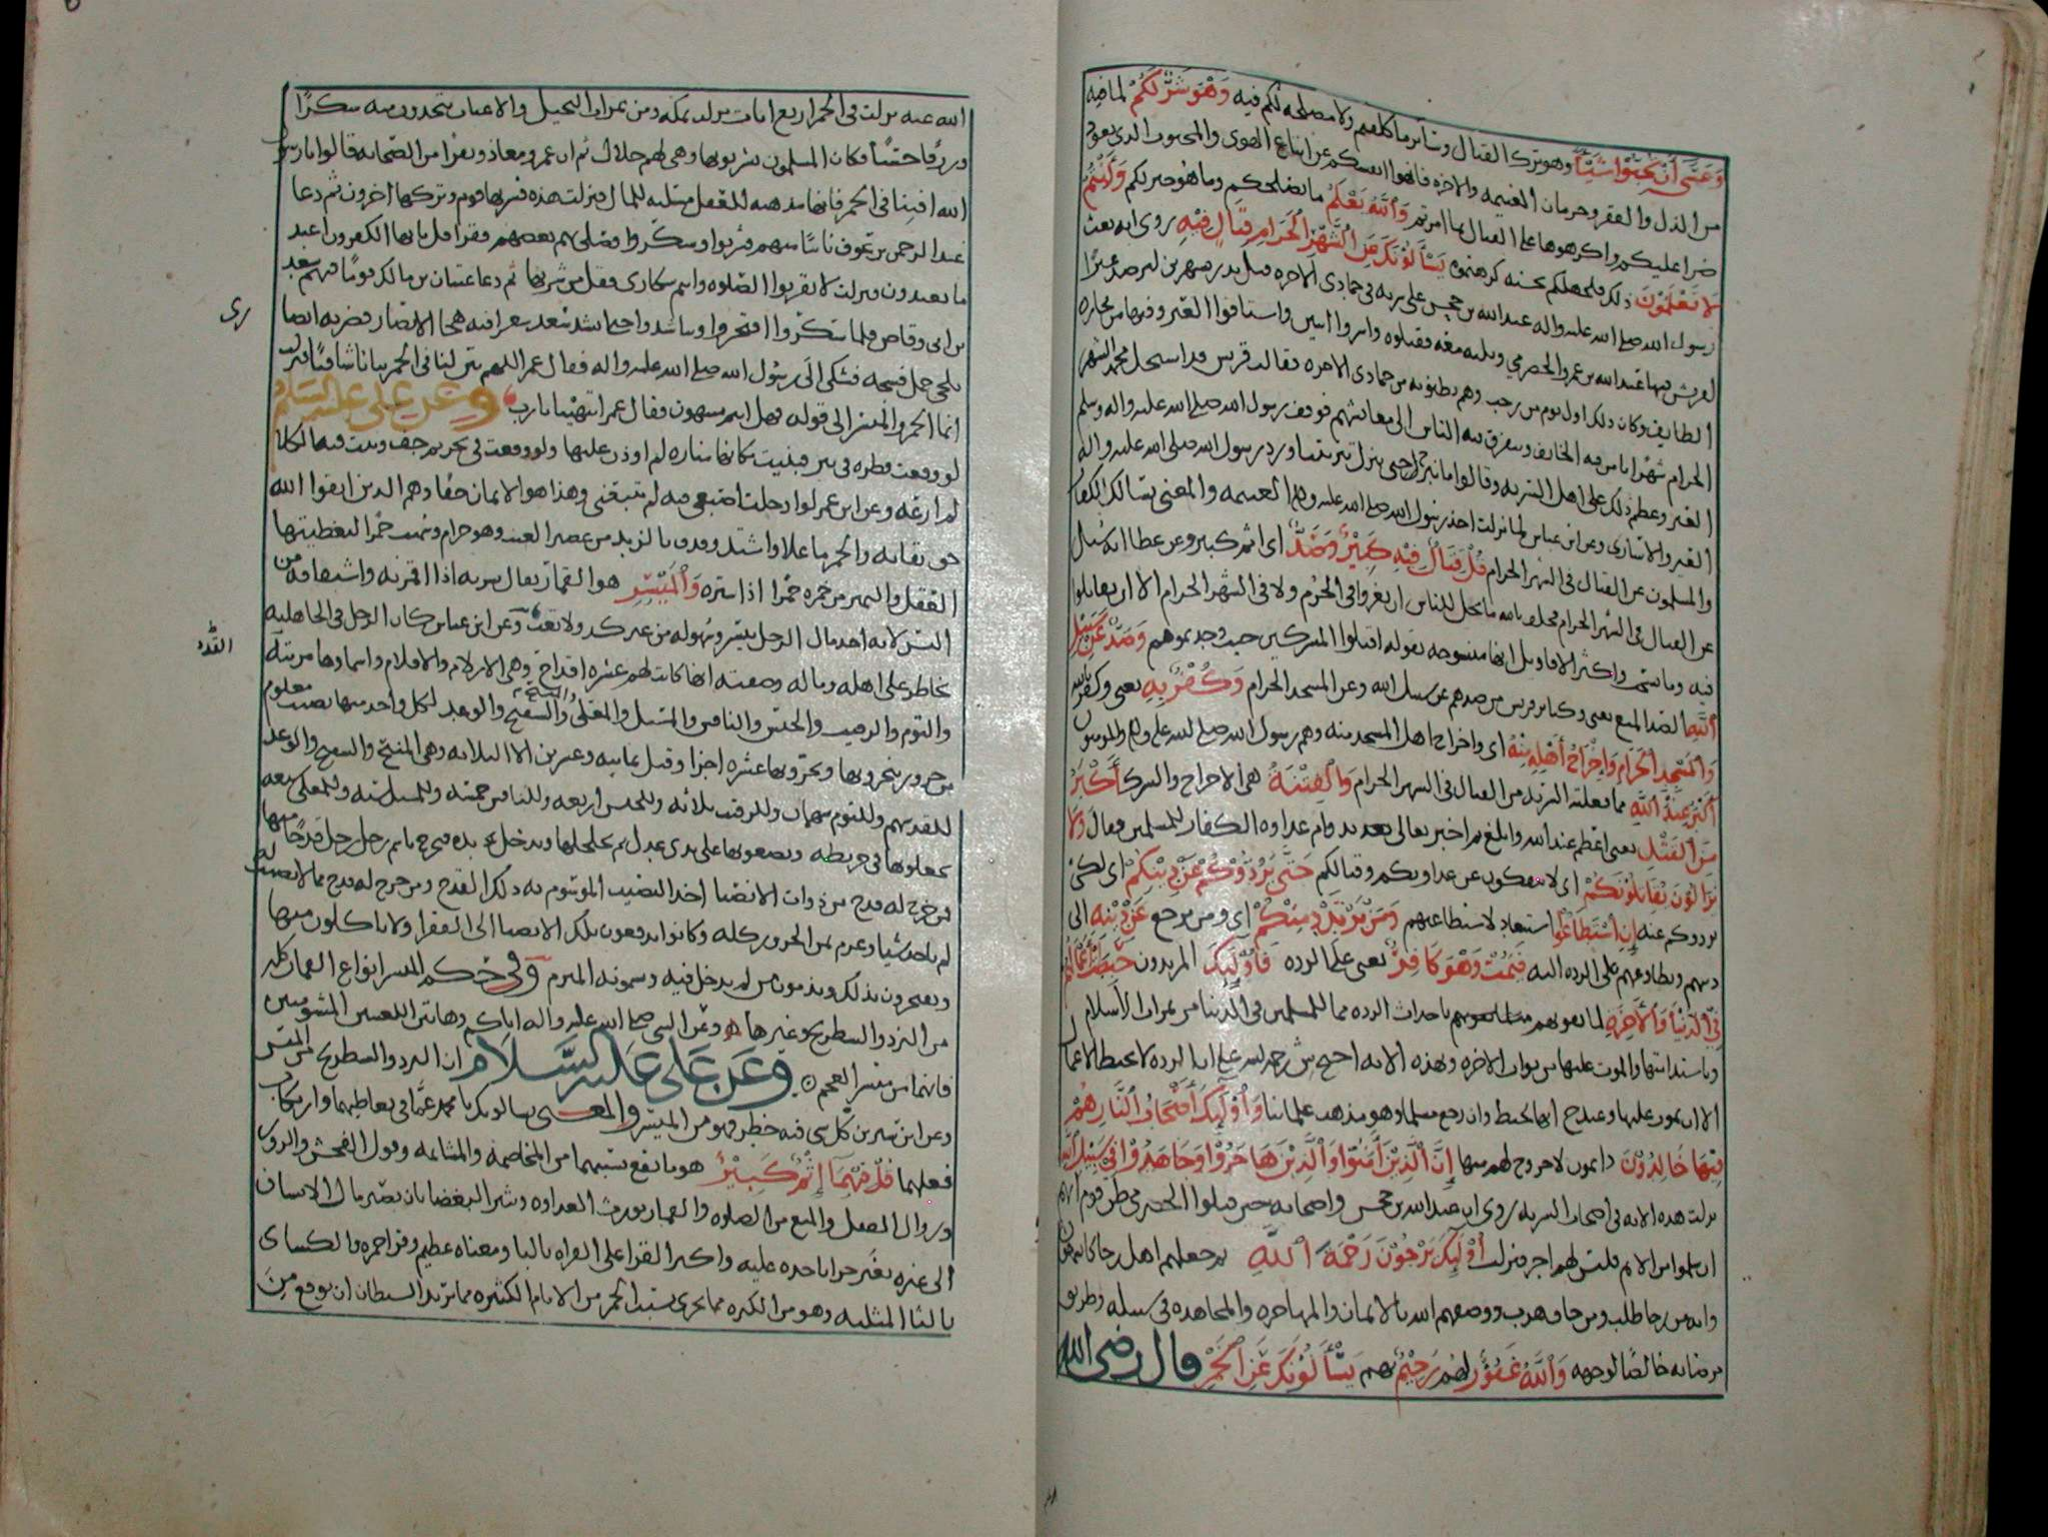 وَعَسَى أَنْ تُحِبُّوا شَيْئًا وهو ترك القتال وسائر ما كلفهم ولا مصلحة لكم فيه وَهُوَ شَرٌّ لَكُمْ لما فيه
من الذل والفقر وحرمان الغنيمة والاخرة فانهوا انفسكم عن اتباع الهوى والمحبوب الذي يعود
ضرا عليكم واكرهوها على القتال لما امرتم وَاللَّهُ يَعْلَمُ ما يصلحكم وما هو خير لكم وَأَنْتُمْ
لَا تَعْلَمُونَ ذلك يَسْأَلُونَكَ عَنِ الشَّهْرِ الْحَرَامِ قِتَالٍ فِيهِ روى انه بعث
رسول الله صلى الله عليه واله عبد الله بن جحش على سرية في جمادى الاخرة قبل بدر بشهرين ليرصد عيرًا
لقريش فيها عمرو الحضرمي وثلثة معه فقتلوه واسروا اثنين واستاقوا العير وفيها من تجارة
الطائف وكان ذلك اول يوم من رجب وهم يظنونه من جمادى الاخرة فقالت قريش قد استحل محمد الشهر
الحرام شهرًا يامن فيه الخائف ويتفرق فيه الناس الى معائشهم فوقف رسول الله صلى الله عليه واله وسلم
العير وعظم ذلك على اهل السرية وقالوا ما نبرح حتى ينزل توبتنا ورد رسول الله صلى الله عليه واله
العير والاسارى وعن ابن عباس لما نزلت اخذ رسول الله صلى الله عليه واله الغنيمة والمعنى يسالك الكفار
والمسلمون عن القتال في الشهر الحرام قُلْ قِتَالٌ فِيهِ كَبِيرٌ وَصَدٌّ اي اثم كبير وعن عطا انه سئل
عن القتال في الشهر الحرام فحلف بالله ما يحل للناس ان يغزوا في الحرم ولا في الشهر الحرام الا ان يقاتلوا
فيه وما نسخت واكثر الاقاويل انها منسوخة بقوله اقتلوا المشركين حيث وجدتموهم وَصَدٌّ عَنْ سَبِيلِ
اللَّهِ الصد المنع يعني وكبائر قريش من صدهم عن سبيل الله وعن المسجد الحرام وَكُفْرٌ بِهِ يعني وكفر بالله
وَالْمَسْجِدِ الْحَرَامِ وَإِخْرَاجُ أَهْلِهِ مِنْهُ اي واخراج اهل المسجد منه وهم رسول الله صلى الله عليه واله والمومنون
أَكْبَرُ عِنْدَ اللَّهِ مما فعلته السرية من القتال في الشهر الحرام وَالْفِتْنَةُ هي الاخراج والشرك أَكْبَرُ
مِنَ الْقَتْلِ يعني اعظم عند الله وابلغ ثم اخبر تعالى بعد بدوام عداوة الكفار للمسلمين فقال وَلَا
يَزَالُونَ يُقَاتِلُونَكُمْ اي لا ينفكون عن عداوتكم وقتالكم حَتَّى يَرُدُّوكُمْ عَنْ دِينِكُمْ اي لكي
يردوكم عنه إِنِ اسْتَطَاعُوا استبعاد لاستطاعتهم وَمَنْ يَرْتَدِدْ مِنْكُمْ اي ومن يرجع عَنْ دِينِهِ الى
دينهم ويطاوعهم على الردة اليه فَيَمُتْ وَهُوَ كَافِرٌ يعني على الردة فَأُولَئِكَ المرتدون حَبِطَتْ أَعْمَالُهُمْ
فِي الدُّنْيَا وَالْآخِرَةِ لما يفوتهم باحداث الردة مما للمسلمين في الدنيا من ثمرات الاسلام
وباستدامتها والموت عليها من ثواب الاخرة وبهذه الاية احتج ش رحمه الله على ان الردة لا تحبط الاعمال
الا ان يموت عليها وعند ح انها تحبط وان رجع مسلما وهو مذهب علمائنا وَأُولَئِكَ أَصْحَابُ النَّارِ هُمْ
فِيهَا خَالِدُونَ دائمون لا خروج لهم منها إِنَّ الَّذِينَ آمَنُوا وَالَّذِينَ هَاجَرُوا وَجَاهَدُوا فِي سَبِيلِ اللَّهِ
نزلت هذه الاية في اصحاب السرية روي ان عبد الله بن جحش واصحابه حين قتلوا الحضرمي ظن قوم انهم
ان سلموا من الاثم فليس لهم اجر فنزلت أُولَئِكَ يَرْجُونَ رَحْمَةَ اللَّهِ ثم جعلهم اهل رجا كما تسمعون
وانه من رجا طلب ومن خاف هرب ووصفهم الله بالايمان والمهاجرة والمجاهدة في سبيله وطريق
مرضاته خالصًا لوجهه وَاللَّهُ غَفُورٌ لهم رَحِيمٌ بهم يَسْأَلُونَكَ عَنِ الْخَمْرِ قال رضي الله
الله عنه نزلت في الخمر اربع ايات نزلت بمكة ومن ثمرات النخيل والاعناب تتخذون منه سكرًا
ورزقًا حسنًا فكان المسلمون يشربونها وهي لهم حلال ثم ان عمر ومعاذ ونفرًا من الصحابة قالوا يا رسول
الله افتنا في الخمر فانها مذهبة للعقل مسلبة للمال فنزلت هذه فشربها قوم وتركها اخرون ثم دعا
عبد الرحمن بن عوف ناسًا منهم فشربوا وسكروا فصلى بهم بعضهم فقرا قل يا ايها الكفرون اعبد
ما تعبدون فنزلت لا تقربوا الصلوة وانتم سكارى فقل من شربها ثم دعا عتبان بن مالك قومًا فيهم سعد
بن ابي وقاص فلما سكروا افتخروا وتناشدوا حتى انشد سعد شعرا فيه هجا الانصار فضربه انصا
بلحي جمل فشجه فشكى الى رسول الله صلى الله عليه واله فقال عمر اللهم بين لنا في الخمر بيانا شافيًا فنزلت
انما الخمر والميسر الى قوله فهل انتم منتهون فقال عمر انتهينا يا رب وعن علي عليه السلام
لو وقعت قطرة في بير فبنيت مكانها منارة لم اوذن عليها ولو وقعت في بحر ثم جف ونبت فيه الكلا
لم ارعه وعن ابن عمر لو ادخلت اصبعي فيه لم تتبعني وهذا هو الايمان حقا وهم الذين اتقوا الله
حق تقاته والخمر ما غلا واشتد وقذف بالزبد من عصير العنب وهو حرام وسميت خمرًا لتغطيتها
العقل والتمييز من خمره خمرًا اذا ستره وَالْمَيْسِرِ هو القمار يقال يسرته اذا اقمرته واشتقاقه من
اليسر لانه اخذ مال الرجل بيسر وسهولة من غير كد ولا تعب وعن ابن عباس كان الرجل في الجاهلية
يخاطر على اهله وماله وصفته انها كانت لهم عشرة اقداح وهي الازلام والاقلام واسماوها مرتبة
والتوم والرقيب والحلس والنافس والمسبل والمعلى والمنيح والسفيح والوغد لكل واحد منها نصيب معلوم
من جزور ينحرونها ويجزونها عشرة اجزا وقيل ثمانية وعشرين الا الثلاثة وهي المنيح والسفيح والوغد
للفذ سهم وللتوم سهمان وللرقيب ثلاثة وللحلس اربعة وللنافس خمسة وللمسبل ستة وللمعلى سبعة
يجعلونها في خريطة ويضعونها على يدي عدل ثم يجلجلها ويدخل يده فيخرج باسم رجل رجل قدحًا منها
فمن خرج له قدح من ذوات الانصبا اخذ النصيب الموسوم به ذلك القدح ومن خرج له قدح مما لا نصيب له
لم ياخذ شيا وغرم ثمن الجزور كله وكانوا يدفعون تلك الانصبا الى الفقرا ولا ياكلون منها
ويفتخرون بذلك ويذمون من لم يدخل فيه ويسمونه البرم وفي حكم الميسر انواع القمار كلها
من النرد والشطرنج وغيرها وعن النبي صلى الله عليه واله اياكم وهاتين اللعبتين المشومتين
فانهما من ميسر العجم وعن علي عليه السلام ان النرد والشطرنج من الميسر
وعن ابن سيرين كل شي فيه خطر فهو من الميسر والمعنى يسالونك يا محمد عما في تعاطيهما وارتكاب
فعلهما قُلْ فِيهِمَا إِثْمٌ كَبِيرٌ هو ما يقع بسببهما من المخاصمة والمشاتمة وقول الفحش والزور
وزوال العقل والمنع من الصلوة والقمار يورث العداوة وشر البغضا بان يصير مال الانسان
الى غيره بغير جزا ياخذه عليه واكثر القرا على القراة بالبا ومعناه عظيم وقرا حمزة والكساى
بالثا المثلثة وهو من الكثرة مما يجري بسبب الخمر من الاثام الكثيرة مما يريد الشيطان ان يوقع من
رى
القدر